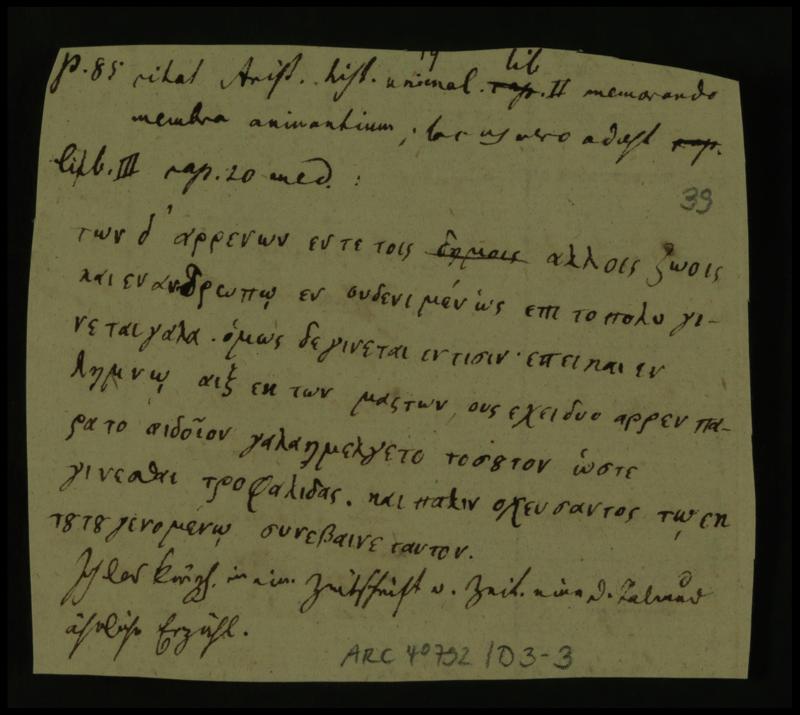 p. 85 citat Arist. hist. animal. cap. lib II memorando
membra animantium; locus vero adest cap.
lib. III cap. 20 med. :
39
των δ' αρρενων εν τε τοις αλλοις ζωοις
και εν ανθρωπῳ εν ουδενι μέν ὡς επι το πολυ γι-
νεται γαλα. ὁμως δε γινεται εν τισιν· επει και εν
λημνῳ αιξ εκ των μαςτων, ους εχει δυο αρρεν πα-
ρα το αιδοῖον γαλα ημελγετο τοσȣτον ὡστε
γινεσθαι τροφαλιδας. και παλιν οχευσαντος τῳ εκ
τȣτȣ γενομενῳ συνεβαινε ταυτον.
in Zeitschrift v. Talmud
ähnliche Erzähl.
ARC 4°792 / D3-3